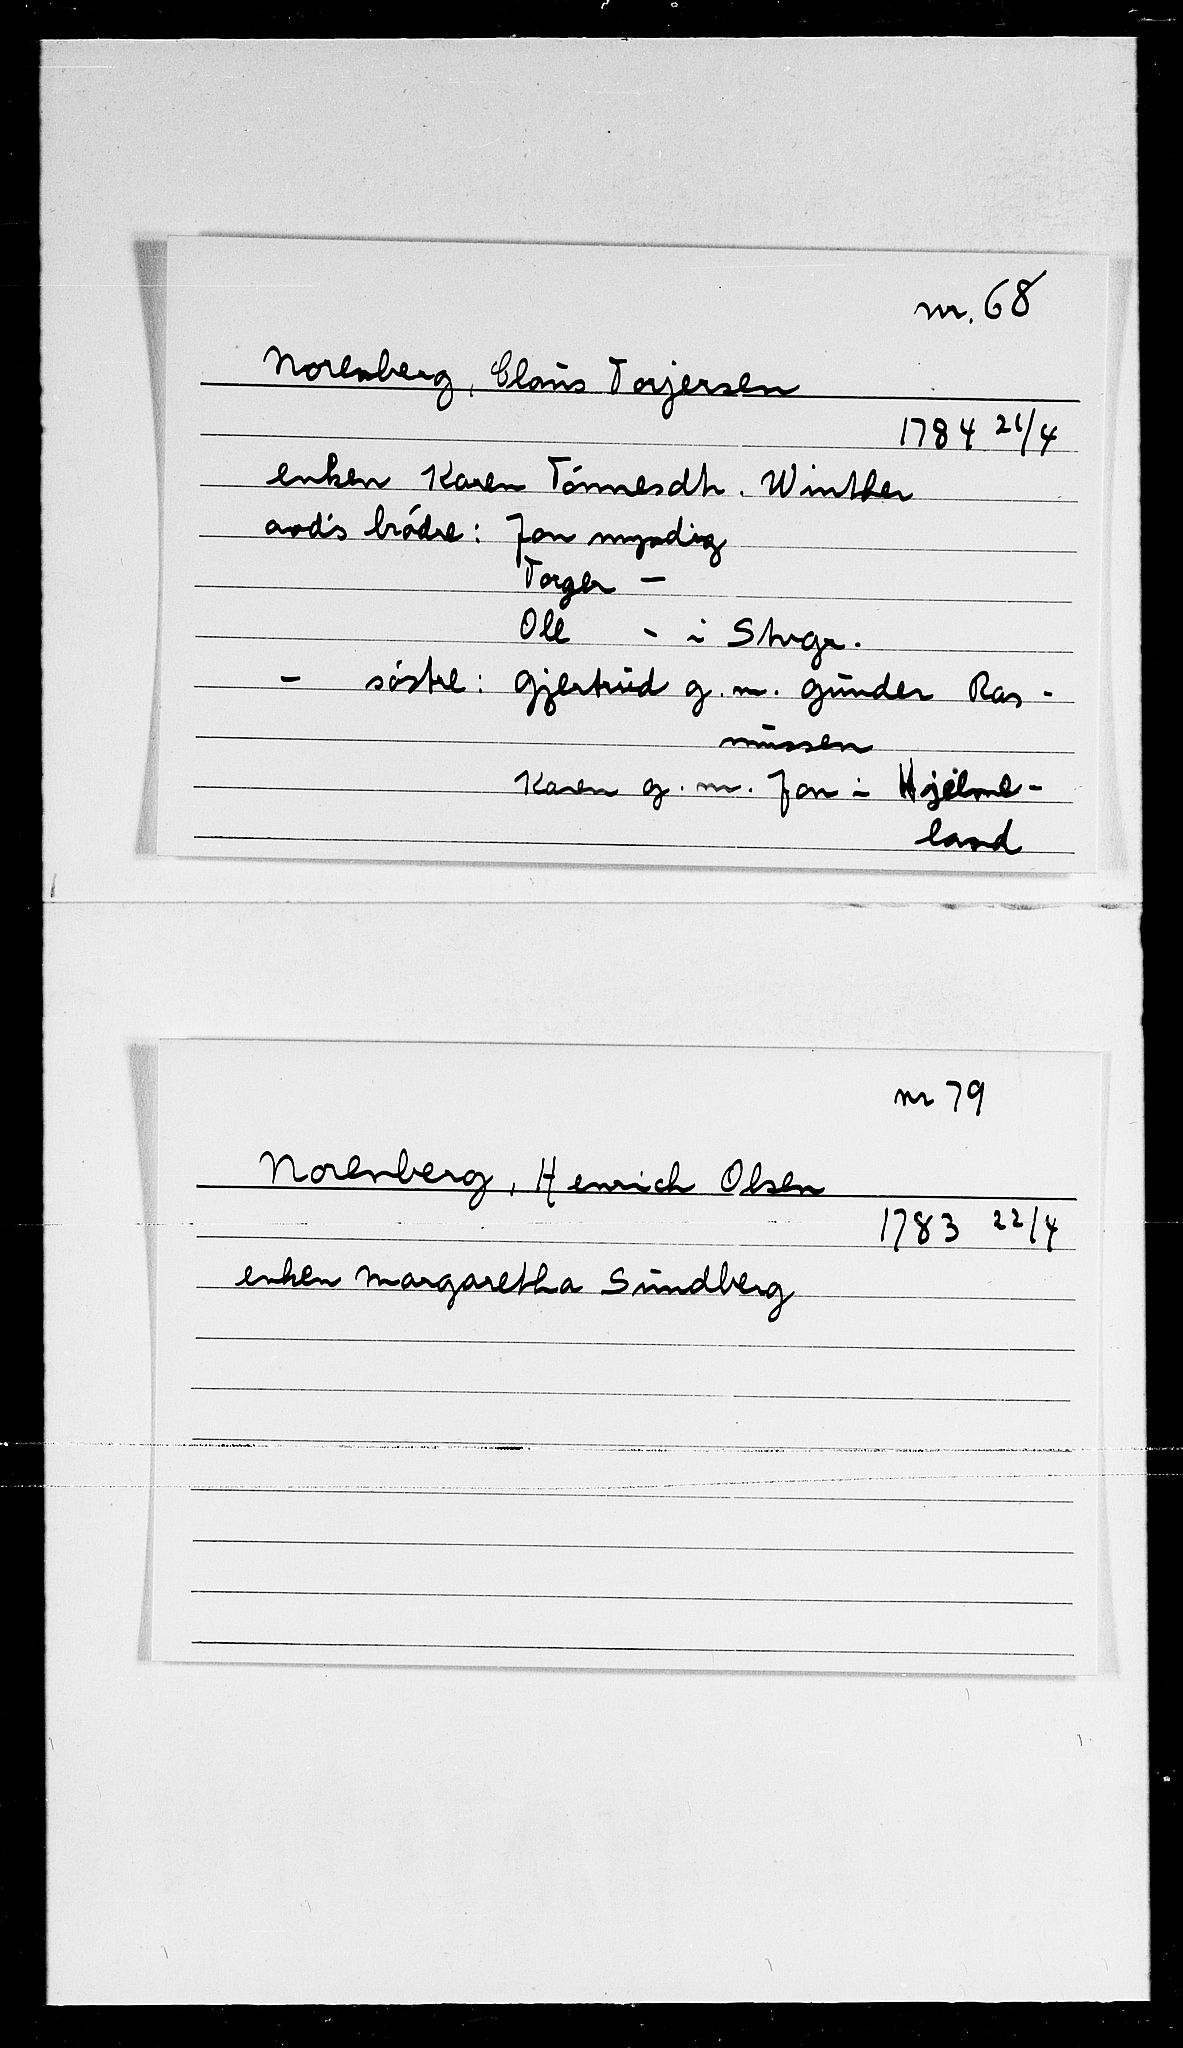 nr. 68
Norenberg, Claus Torjersen
1784 21/4
enken Karen Tönnesdtr. Winther
avd's brödre: Jon myndig
Torger -
Ole - i Stvgr.
- söstre: Gjertrud g. m. Gunder Ras-
mussen
Karen g. m. Jon i Hjelme-
land
nr 79
Norenberg, Henrich Olsen
1783 22/4
enken Margaretha Sundberg